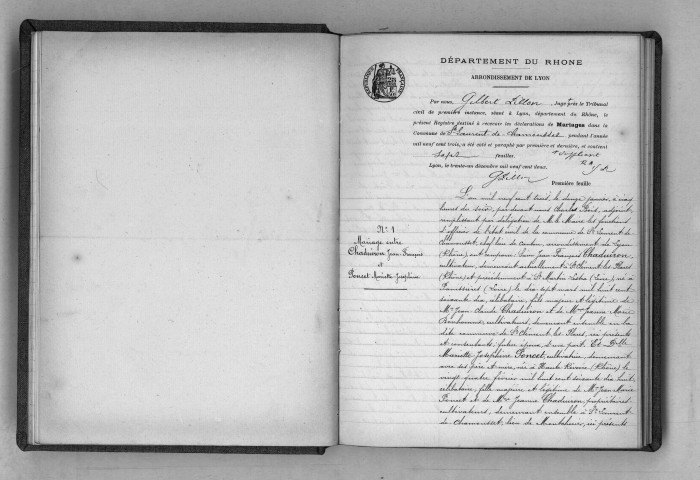 DÉPARTEMENT DU RHONE
ARRONDISSEMENT DE LYON
RÉPUBLIQUE FRANÇAISE
Par nous, Gilbert Juge près le Tribunal
civil de première instance, séant à Lyon, département du Rhône, le
présent Registre destiné à recevoir les déclarations de Mariages dans la
Commune de St Laurent de Chamousset pendant l'année
mil neuf cent trois, a été coté et paraphé par première et dernière, et contient
sept feuillets
Lyon, le trente-un décembre mil neuf cent deux.
Première feuille
N° 1
Mariage entre
Chaduiron Jean François
&
Poncet Mariette Joséphine
L'an mil neuf cent trois, le douze janvier, à
heures du soir, par devant nous Charles adjoint,
remplissant par délégation de M. le Maire les fonctions
d'officier de l'état civil de la commune de St Laurent de
Chamousset, chef lieu de canton, arrondissement de Lyon
(Rhône) ont comparu: Jean François Chaduiron,
cultivateur, demeurant actuellement à St Clément les Places
(Rhône) et précédemment à St Martin Lestra (Loire), né à
Panissières (Loire) le dix sept mars mil huit cent
soixante dix, célibataire, fils majeur et légitime de
Mr Jean Claude Chaduiron et de Mme Jeanne Marie
cultivateurs, demeurant ensemble en la
dite commune de St Clément les Places, ici présents
et consentants, futur époux, d'une part. Et Delle
Mariette Joséphine Poncet, cultivatrice, demeurant
avec ses père et mère, née à Haute Rivoire (Rhône) le
vingt quatre février mil huit cent soixante dix huit,
célibataire, fille majeure et légitime de Mr Jean Marie
Poncet et de Mme Jeanne Chaduiron, propriétaires
cultivateurs, demeurant ensemble à St Laurent
de Chamousset, lieu de ici présents